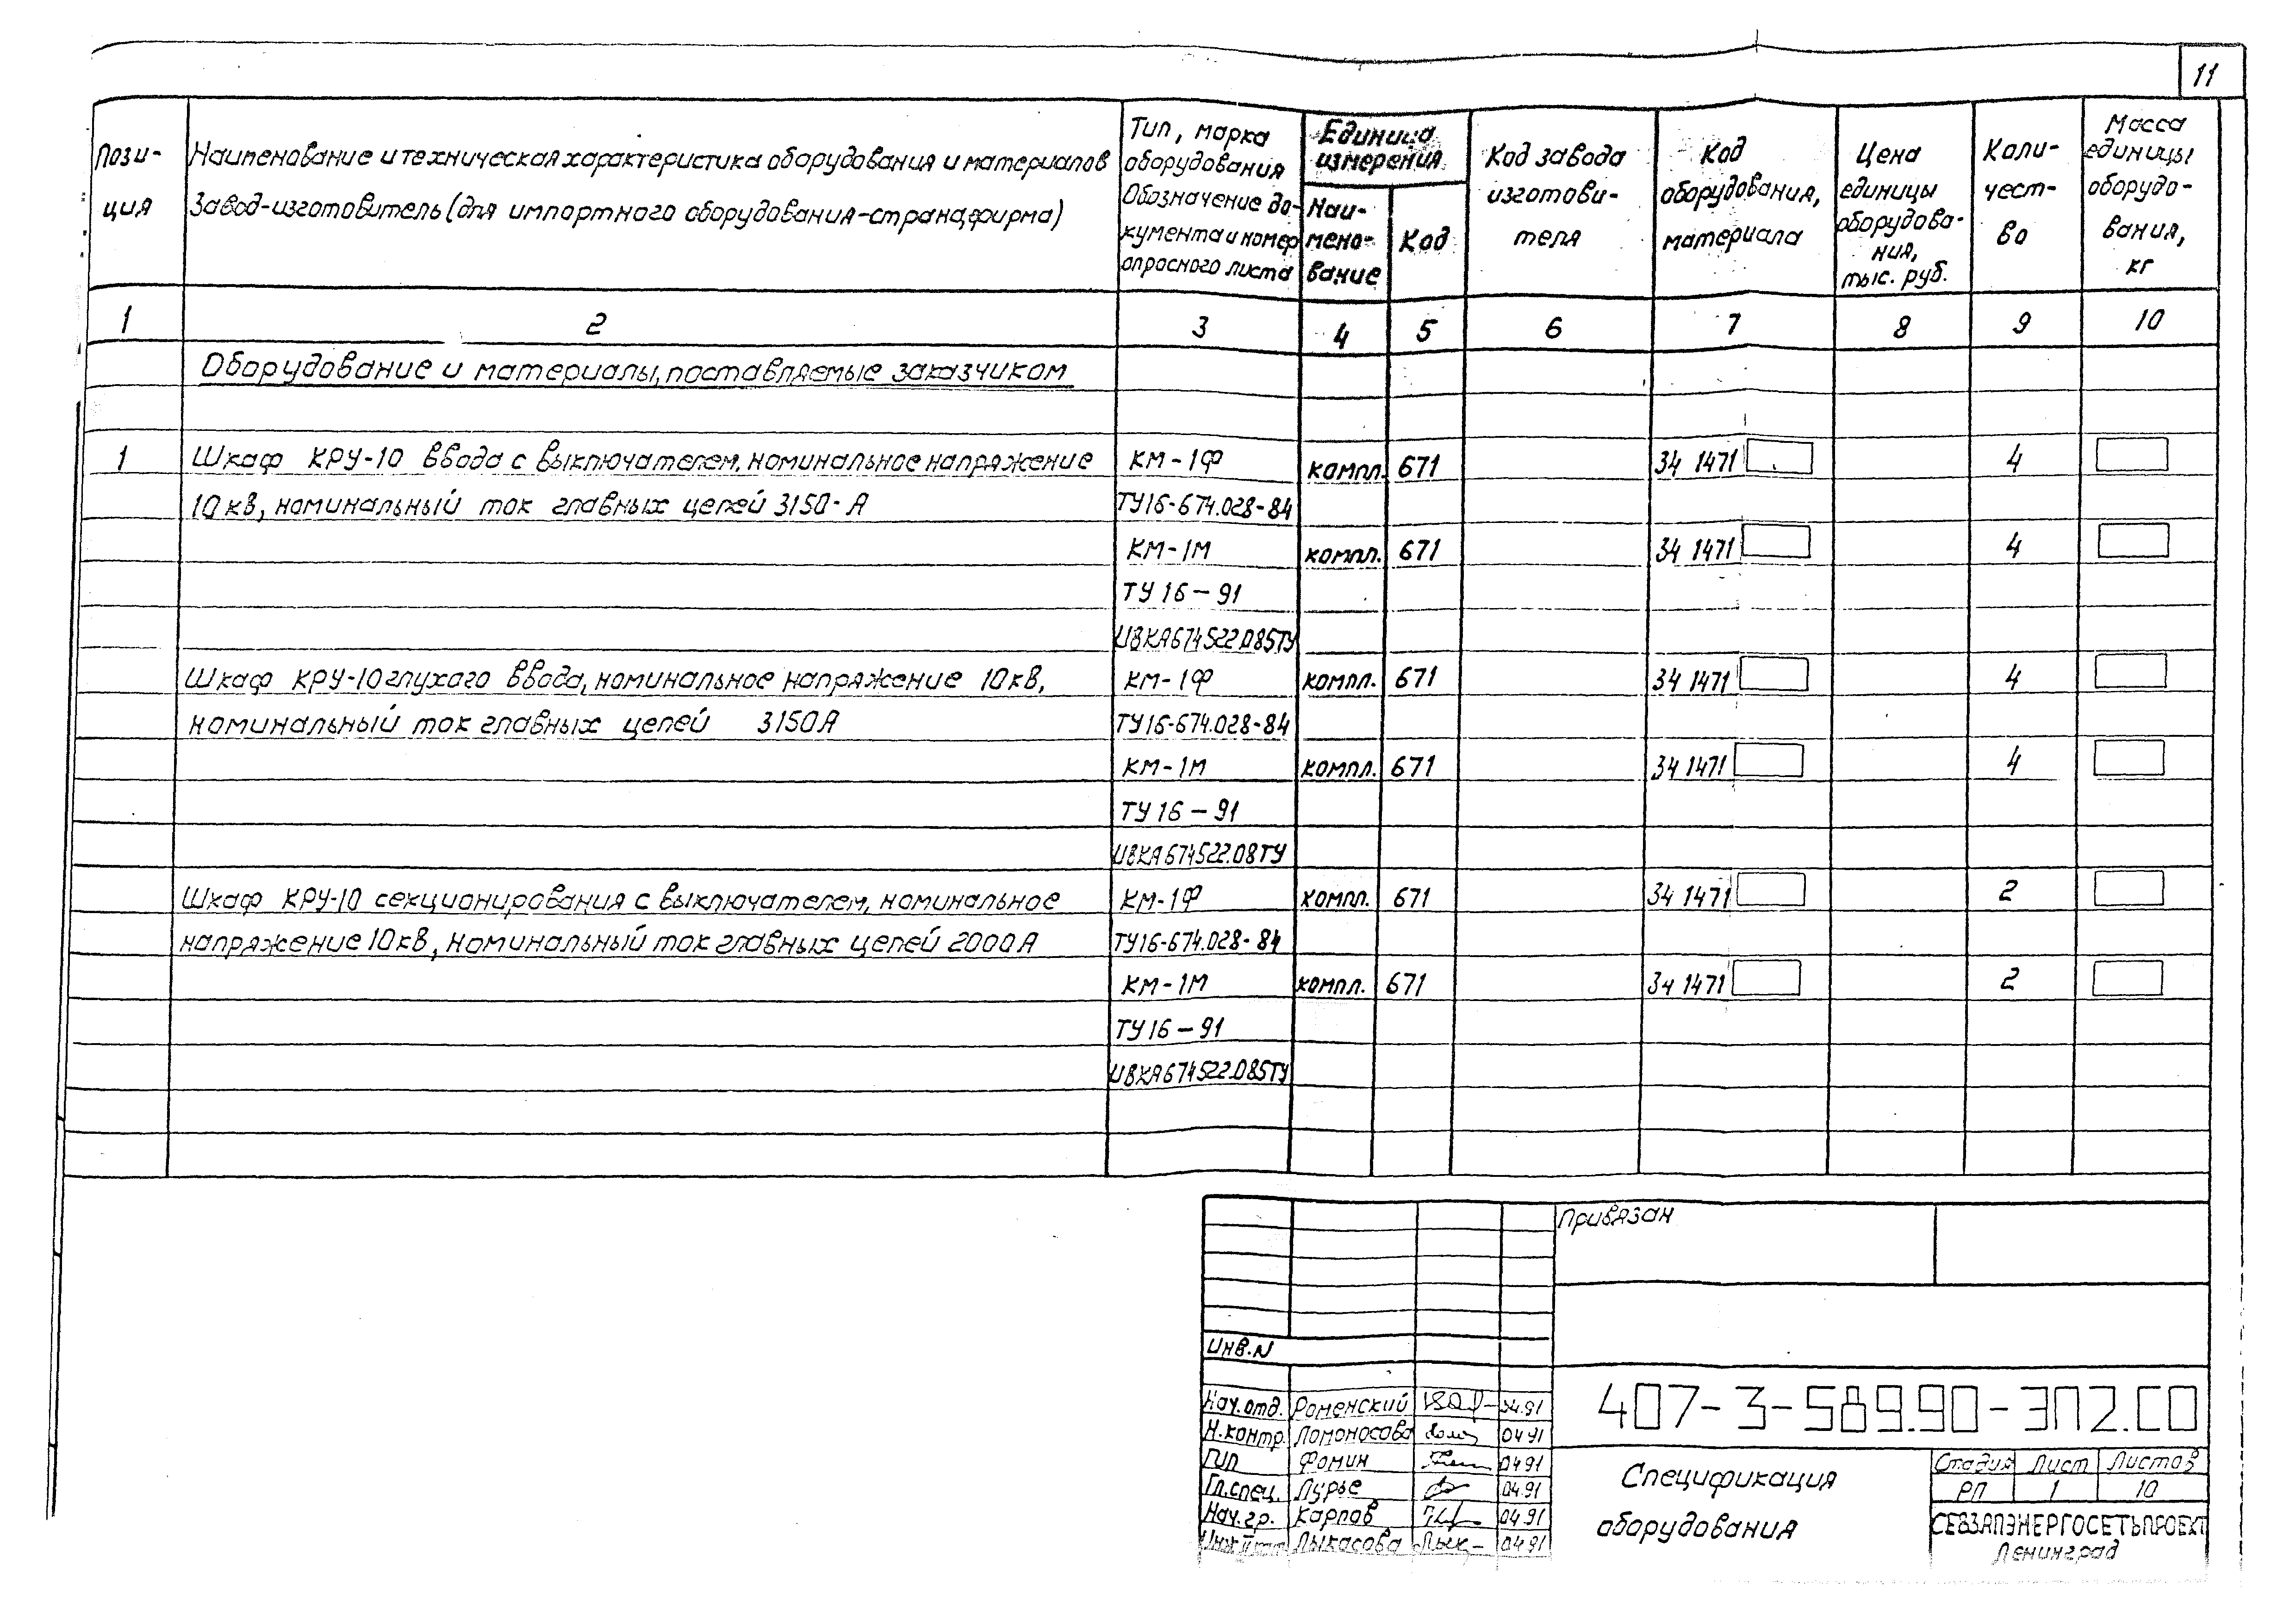 11
Пози-
ция
Наименование и техническая характеристика оборудования и материалов
Завод-изготовитель (для импортного оборудования-страна, фирма)
Тип, марка
оборудования
Обозначение до-
кумента и номер
опросного листа
Единица
измерения
Наи-
мено-
вание
Код
Код завода
изготови-
теля
Код
оборудования,
материала
Цена
единицы
оборудова-
ния,
тыс. руб.
Коли-
чест-
во
Масса
единицы
оборудо-
вания,
кг
1 2 3 4 5 6 7 8 9 10
Оборудование и материалы, поставляемые заказчиком
1 Шкаф КРУ-10 ввода с выключателем, номинальное напряжение КМ-1Ф компл. 671 34 1471 4
10кВ, номинальный ток главных цепей 3150-А ТУ16-674.028-84
КМ-1М компл. 671 34 1471 4
ТУ 16-91
ИВКА674522.085ТУ
Шкаф КРУ-10 глухого ввода, номинальное напряжение 10кВ, КМ-1Ф компл. 671 34 1471 4
номинальный ток главных цепей 3150А ТУ16-674.028-84
КМ-1М компл. 671 34 1471 4
ТУ 16-91
ИВКА674522.08ТУ
Шкаф КРУ-10 секционирования с выключателем, номинальное КМ-1Ф компл. 671 34 1471 2
напряжение 10кВ, номинальный ток главных цепей 2000А ТУ16-674.028-84
КМ-1М компл. 671 34 1471 2
ТУ16-91
ИВКА674522.085ТУ
Привязан
Инв.N
407-3-589.90-ЭП2.СО
Нач.отд. Роменский 04.91
Н.контр. Ломоносова 04 91
ГИП Фомин 04 91
Гл.спец. Лурье 04.91
Нач.гр. Карпов 04 91
Лыкасова 04 91
Спецификация
оборудования
Стадия Лист Листов
РП 1 10
СЕВЗАПЭНЕРГОСЕТЬПРОЕКТ
Ленинград